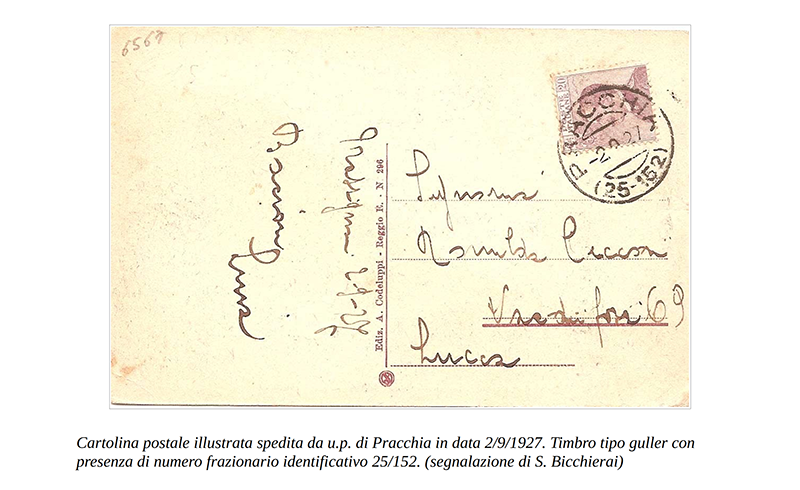 6567
20
PRACCHIA
-2.9.27
(25-152)
Ediz. A. Codeluppi - Reggio E. - N 296
2-9-27
Romilda
Via di fori 69
Lucca
Cartolina postale illustrata spedita da u.p. di Pracchia in data 2/9/1927. Timbro tipo guller con
presenza di numero frazionario identificativo 25/152. (segnalazione di S. Bicchierai)